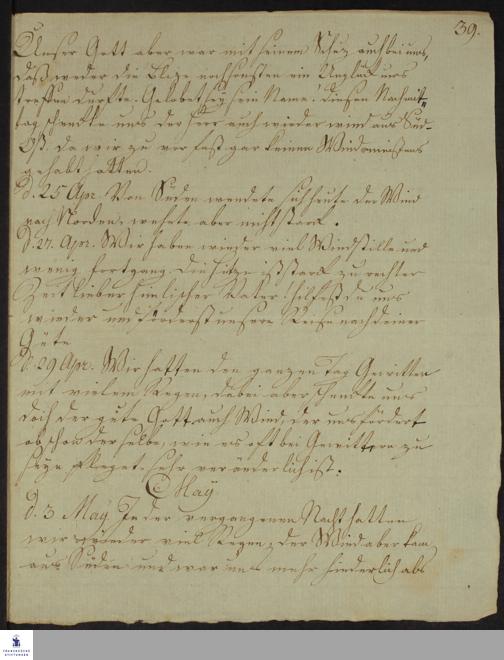 39.
Unser Gott aber war mit seinem Schuz auch bei uns,
daß weder die Blize noch sonsten ein Unglück uns
treffen durfte. Gelobet sey sein Name! diesen Nachmit=
tag schenkte uns der Herr auch wieder wind aus Süd-
Ost, da wir zuvor fast gar keinen Wind
gehabt hatten.
d. 25 Apr. Von Süden wendete sich heute der Wind
nach Norden, wehete aber nicht stark.
d. 27. Apr. Wir haben wieder viel Windstille und
wenig fortgang. Die Hitze ist stark. zu rechter
Zeit lieber himlischer Vater! hilfest du uns
wieder und förderst unsere Reise nach deiner
Güte
d. 29 Apr. Wir hatten den ganzen Tag Gewitter
mit vielem Regen, dabei aber schenkte uns
doch der gute Gott auch Wind, der uns fördert
obschon derselbe, wie es oft bei Gewittern zu
seyn pfleget, sehr veränderlich ist.
May
d. 3 May In der vergangenen Nacht hatten
wir wieder viel Regen, der Wind aber kam
aus Süden und war uns mehr hinderlich als
FRANCKESCHE
STIFTUNGEN